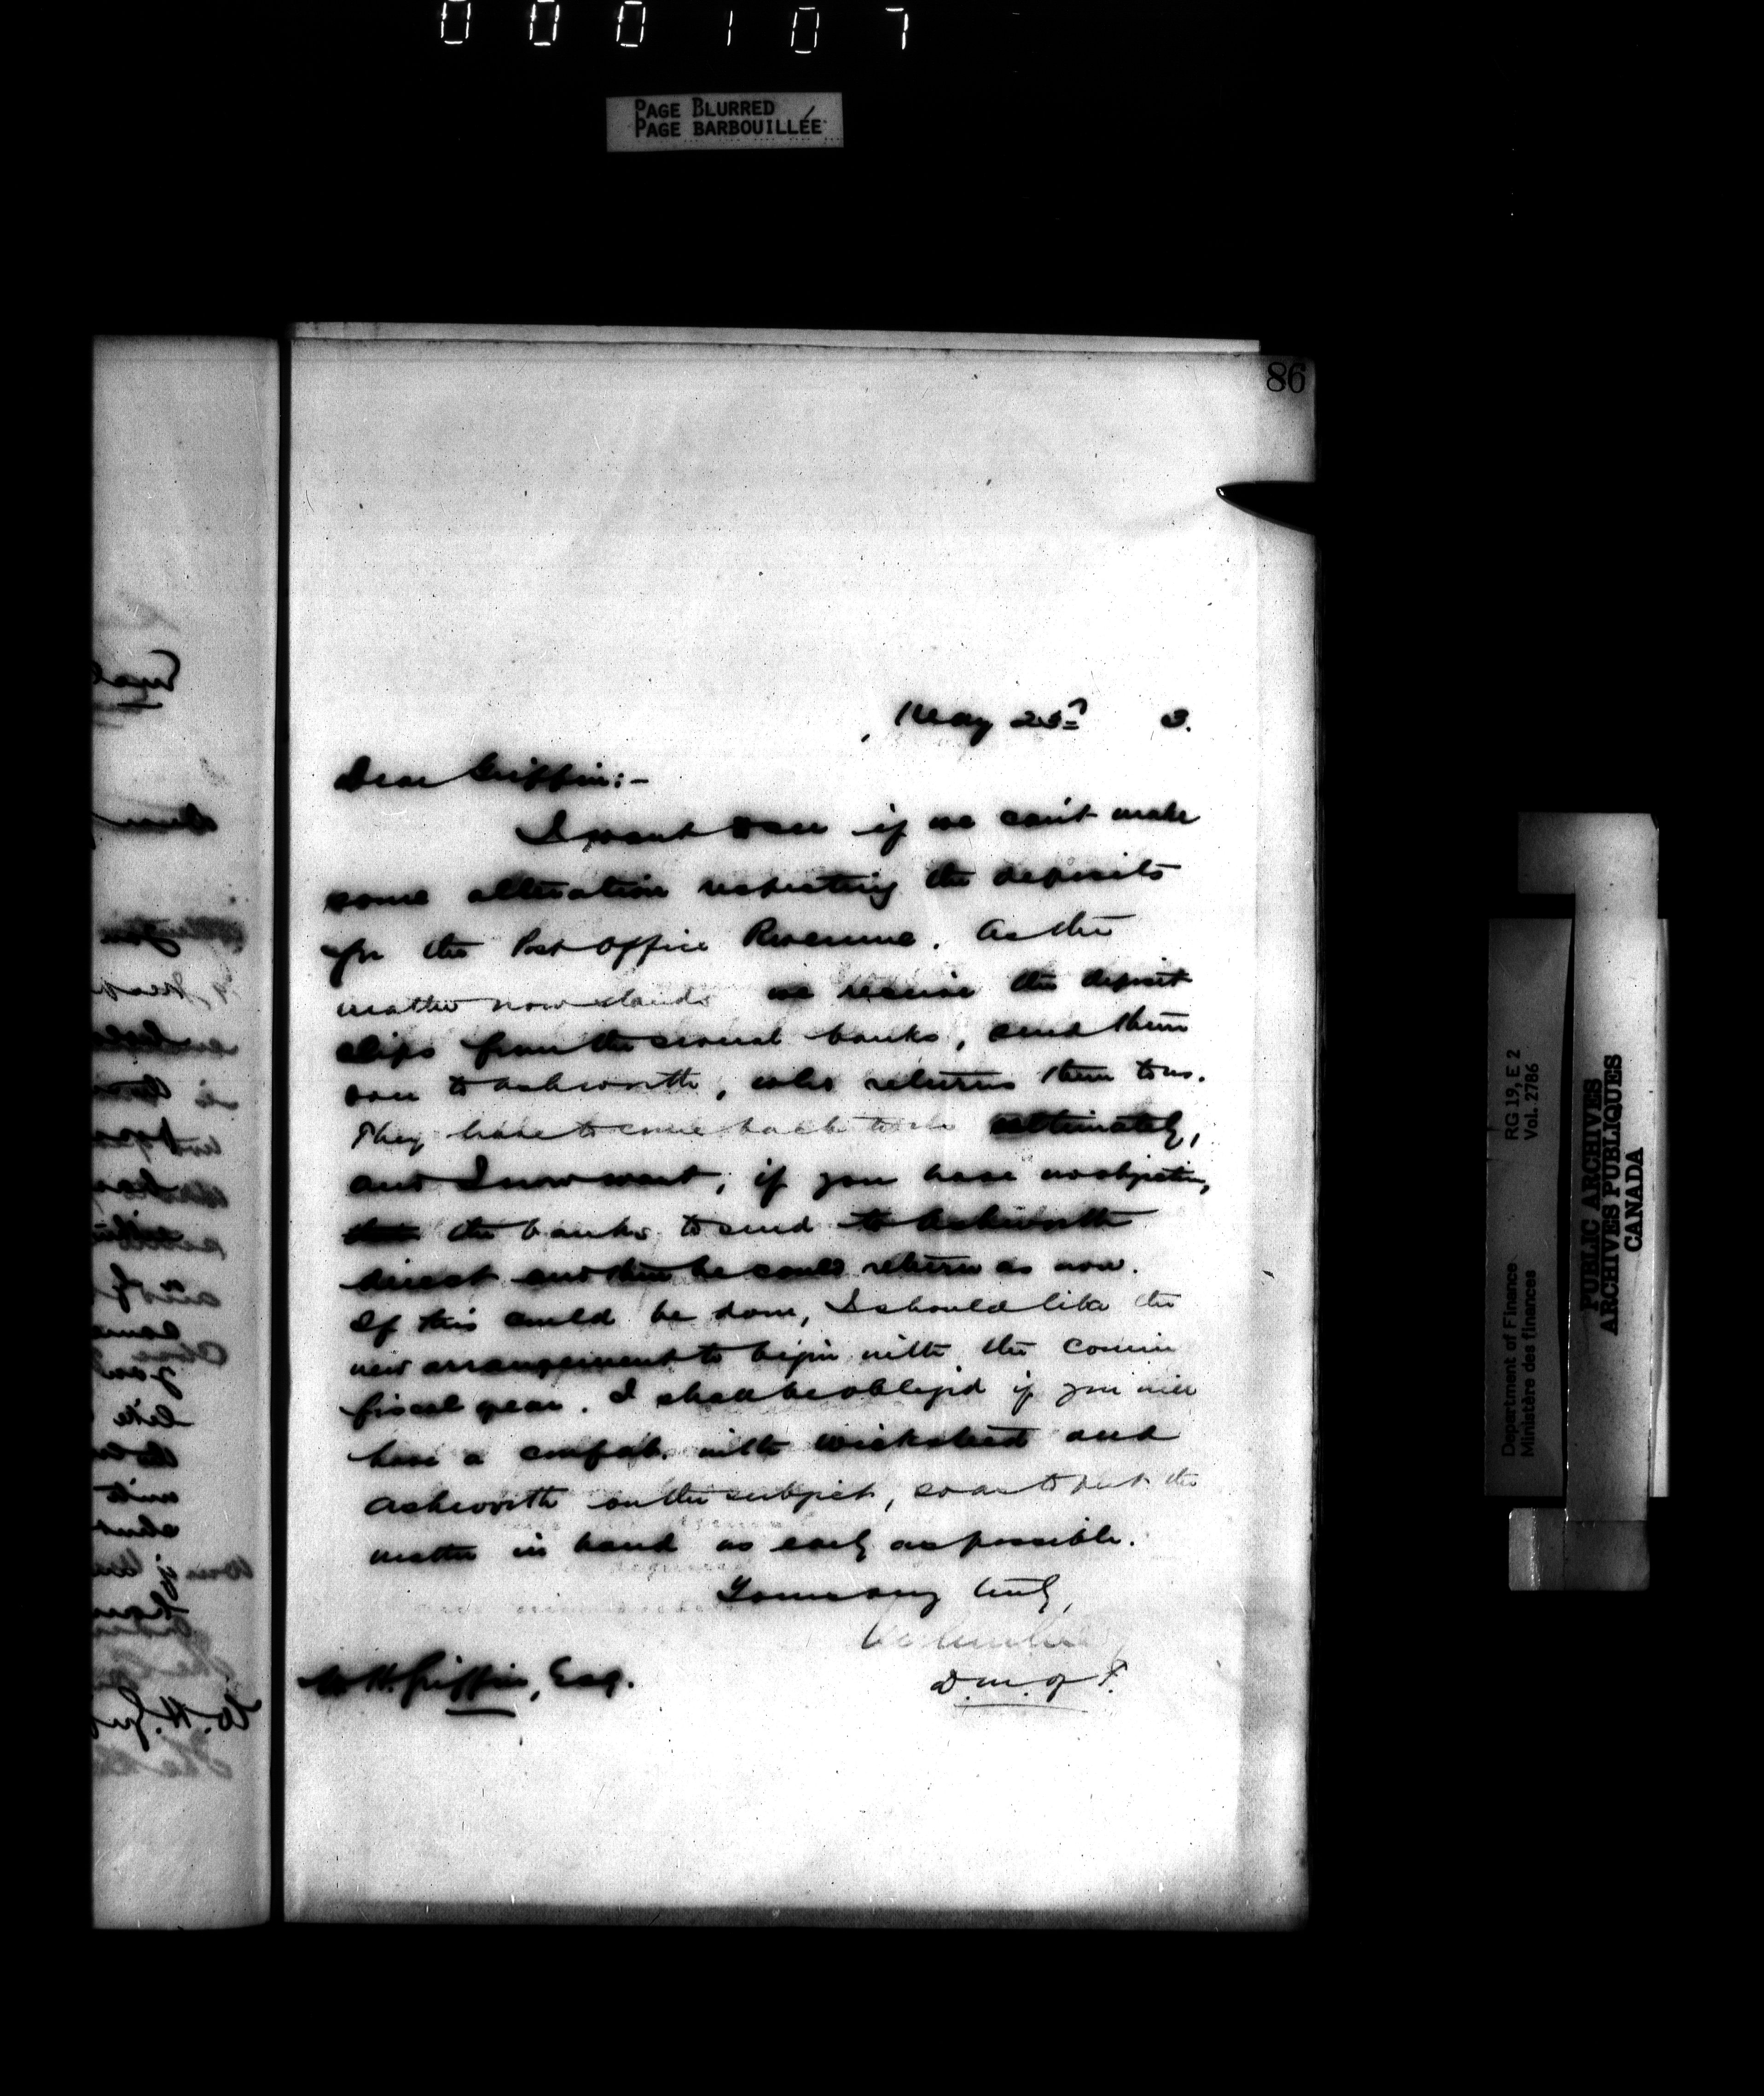 000107
PAGE BLURRED
PAGE BARBOUILLÉE
86
May 23rd 3.
Dear Griffin:-
I want to see if we can't make
some alteration respecting the deposits
for the Post Office Revenue. As the
matter now stands we receive the deposit
slips from the several banks, send them
over to Ashworth, who returns them to us.
They have to come back to us ultimately,
and I now want, if you have no objection,
the banks to send to Ashworth
direct and then he could return as now.
If this could be done, I should like the
new arrangement to begin with the coming
fiscal year. I shall be obliged if you will
have a confab. with Wicksteed and
Ashworth on the subject, so as to put the
matter in hand as early as possible.
Yours very truly,
D.M. of F.
W.H. Griffin, Esq.
Department of Finance
Ministère des finances
RG 19, E 2
Vol. 2786
PUBLIC ARCHIVES
ARCHIVES PUBLIQUES
CANADA